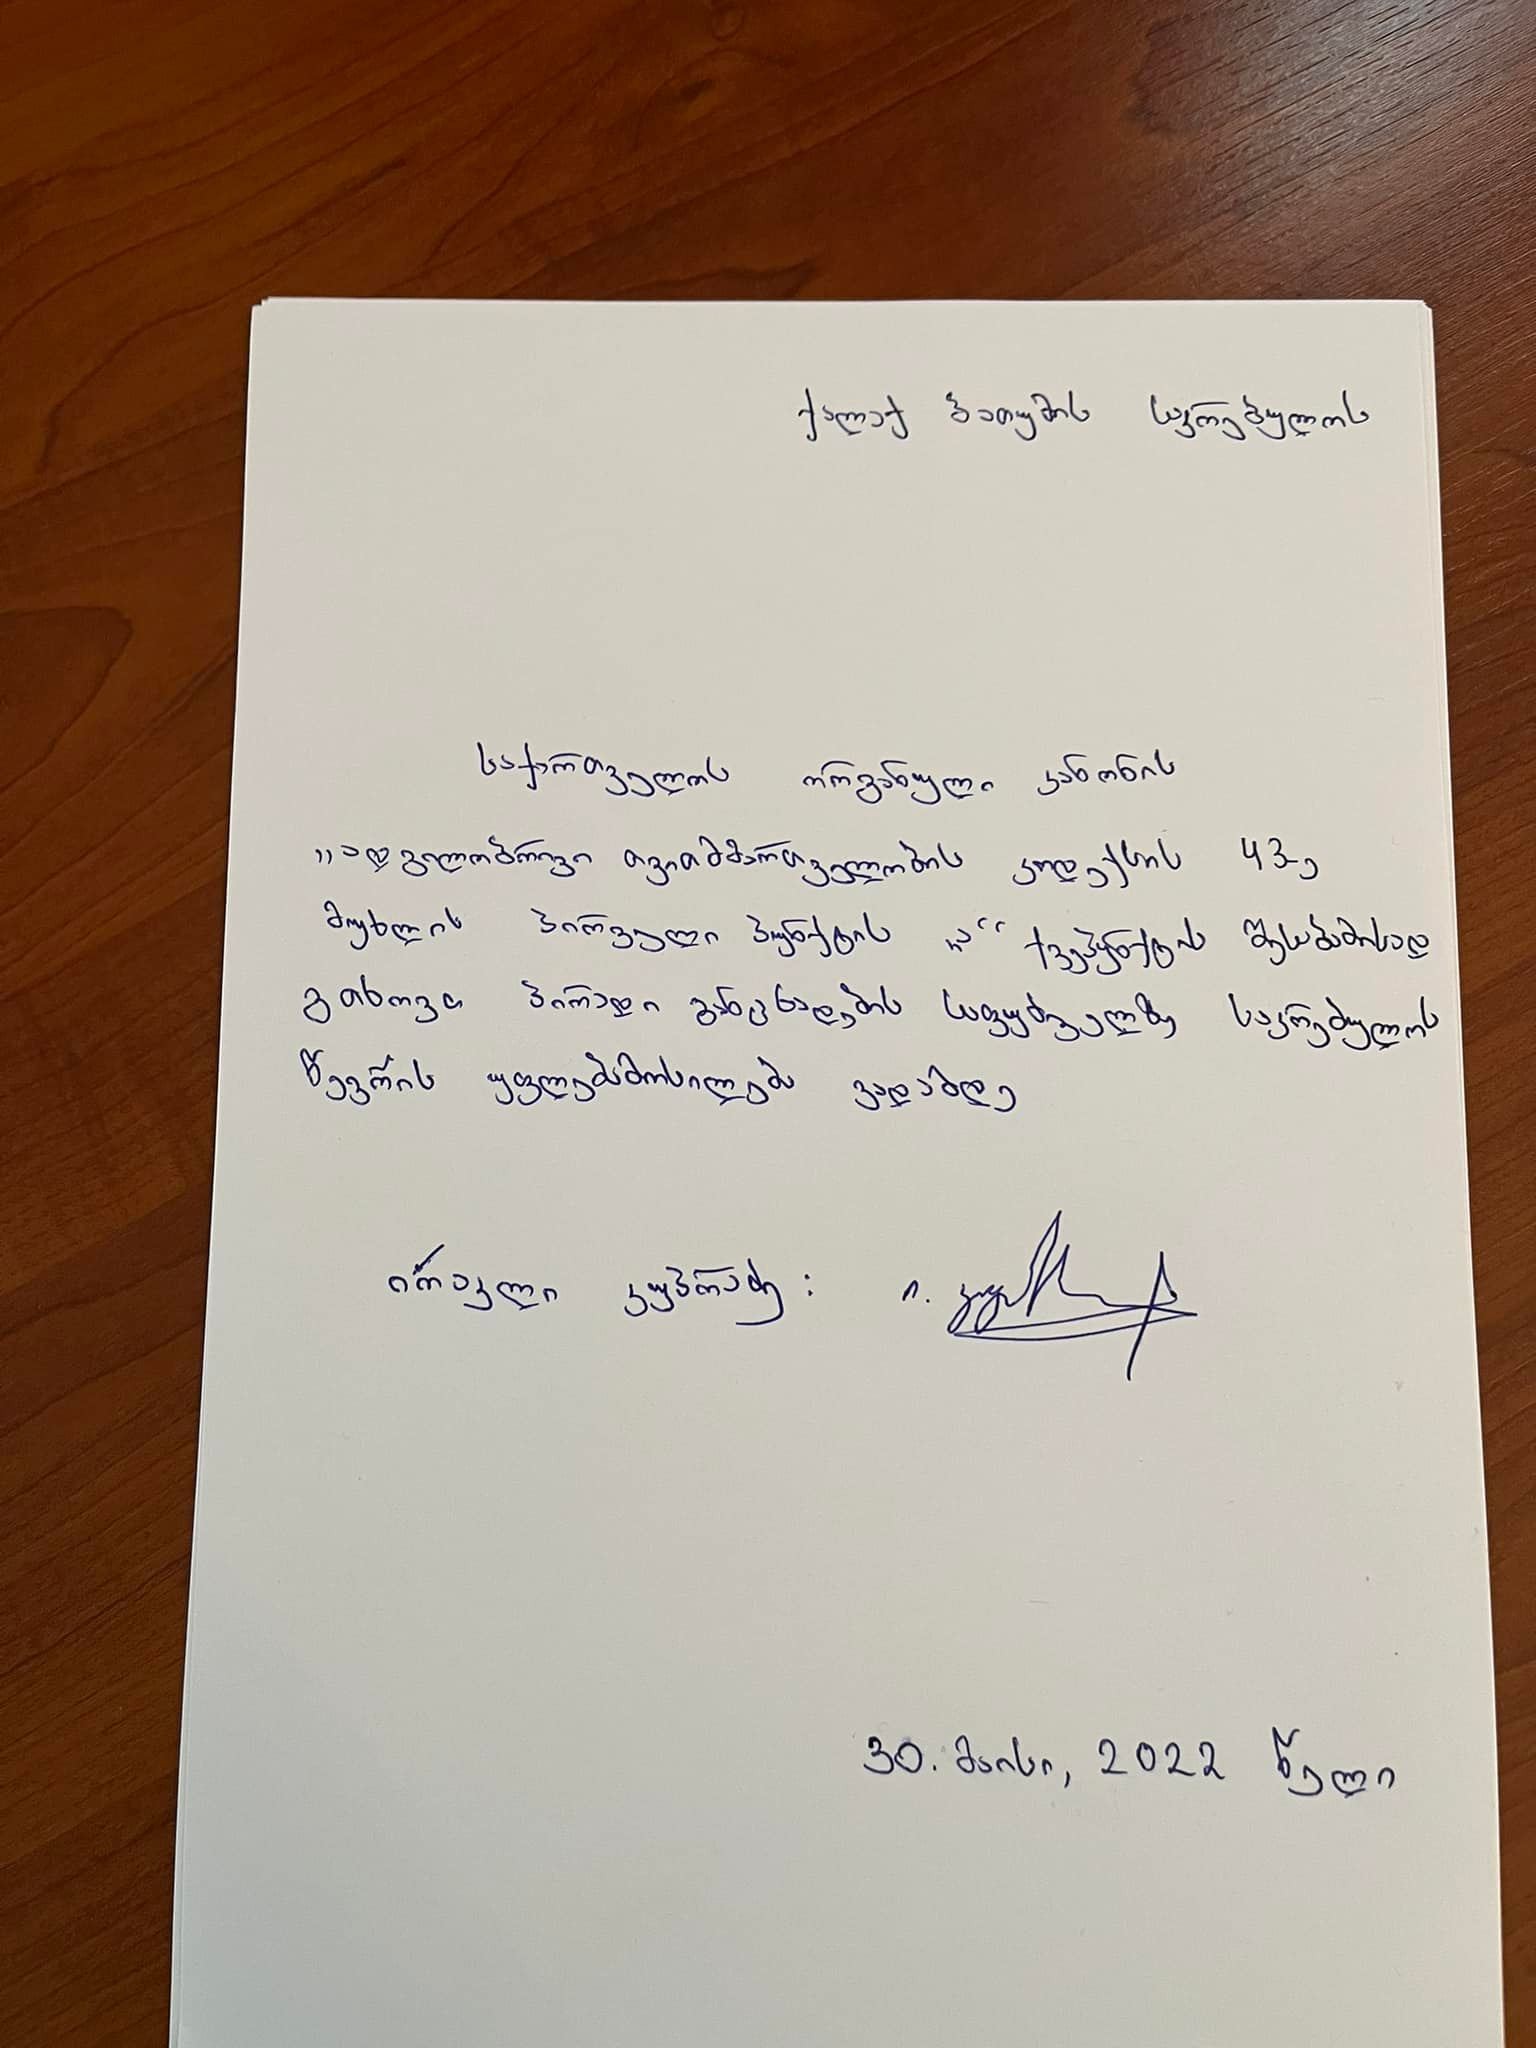 ქალაქ ბათუმის საკრებულოს
საქართველოს ორგანული კანონის
,,ადგილობრივი თვითმმართველობის კოდექსის 43-ე
მუხლის პირველი პუნქტის „ა“ ქვეპუნქტის შესაბამისად
გთხოვთ პირადი განცხადების საფუძველზე საკრებულოს
წევრის უფლებამოსილება ვადამდე
ირაკლი კუპრაძე: ი. კუპრაძე
30. მაისი, 2022 წელი